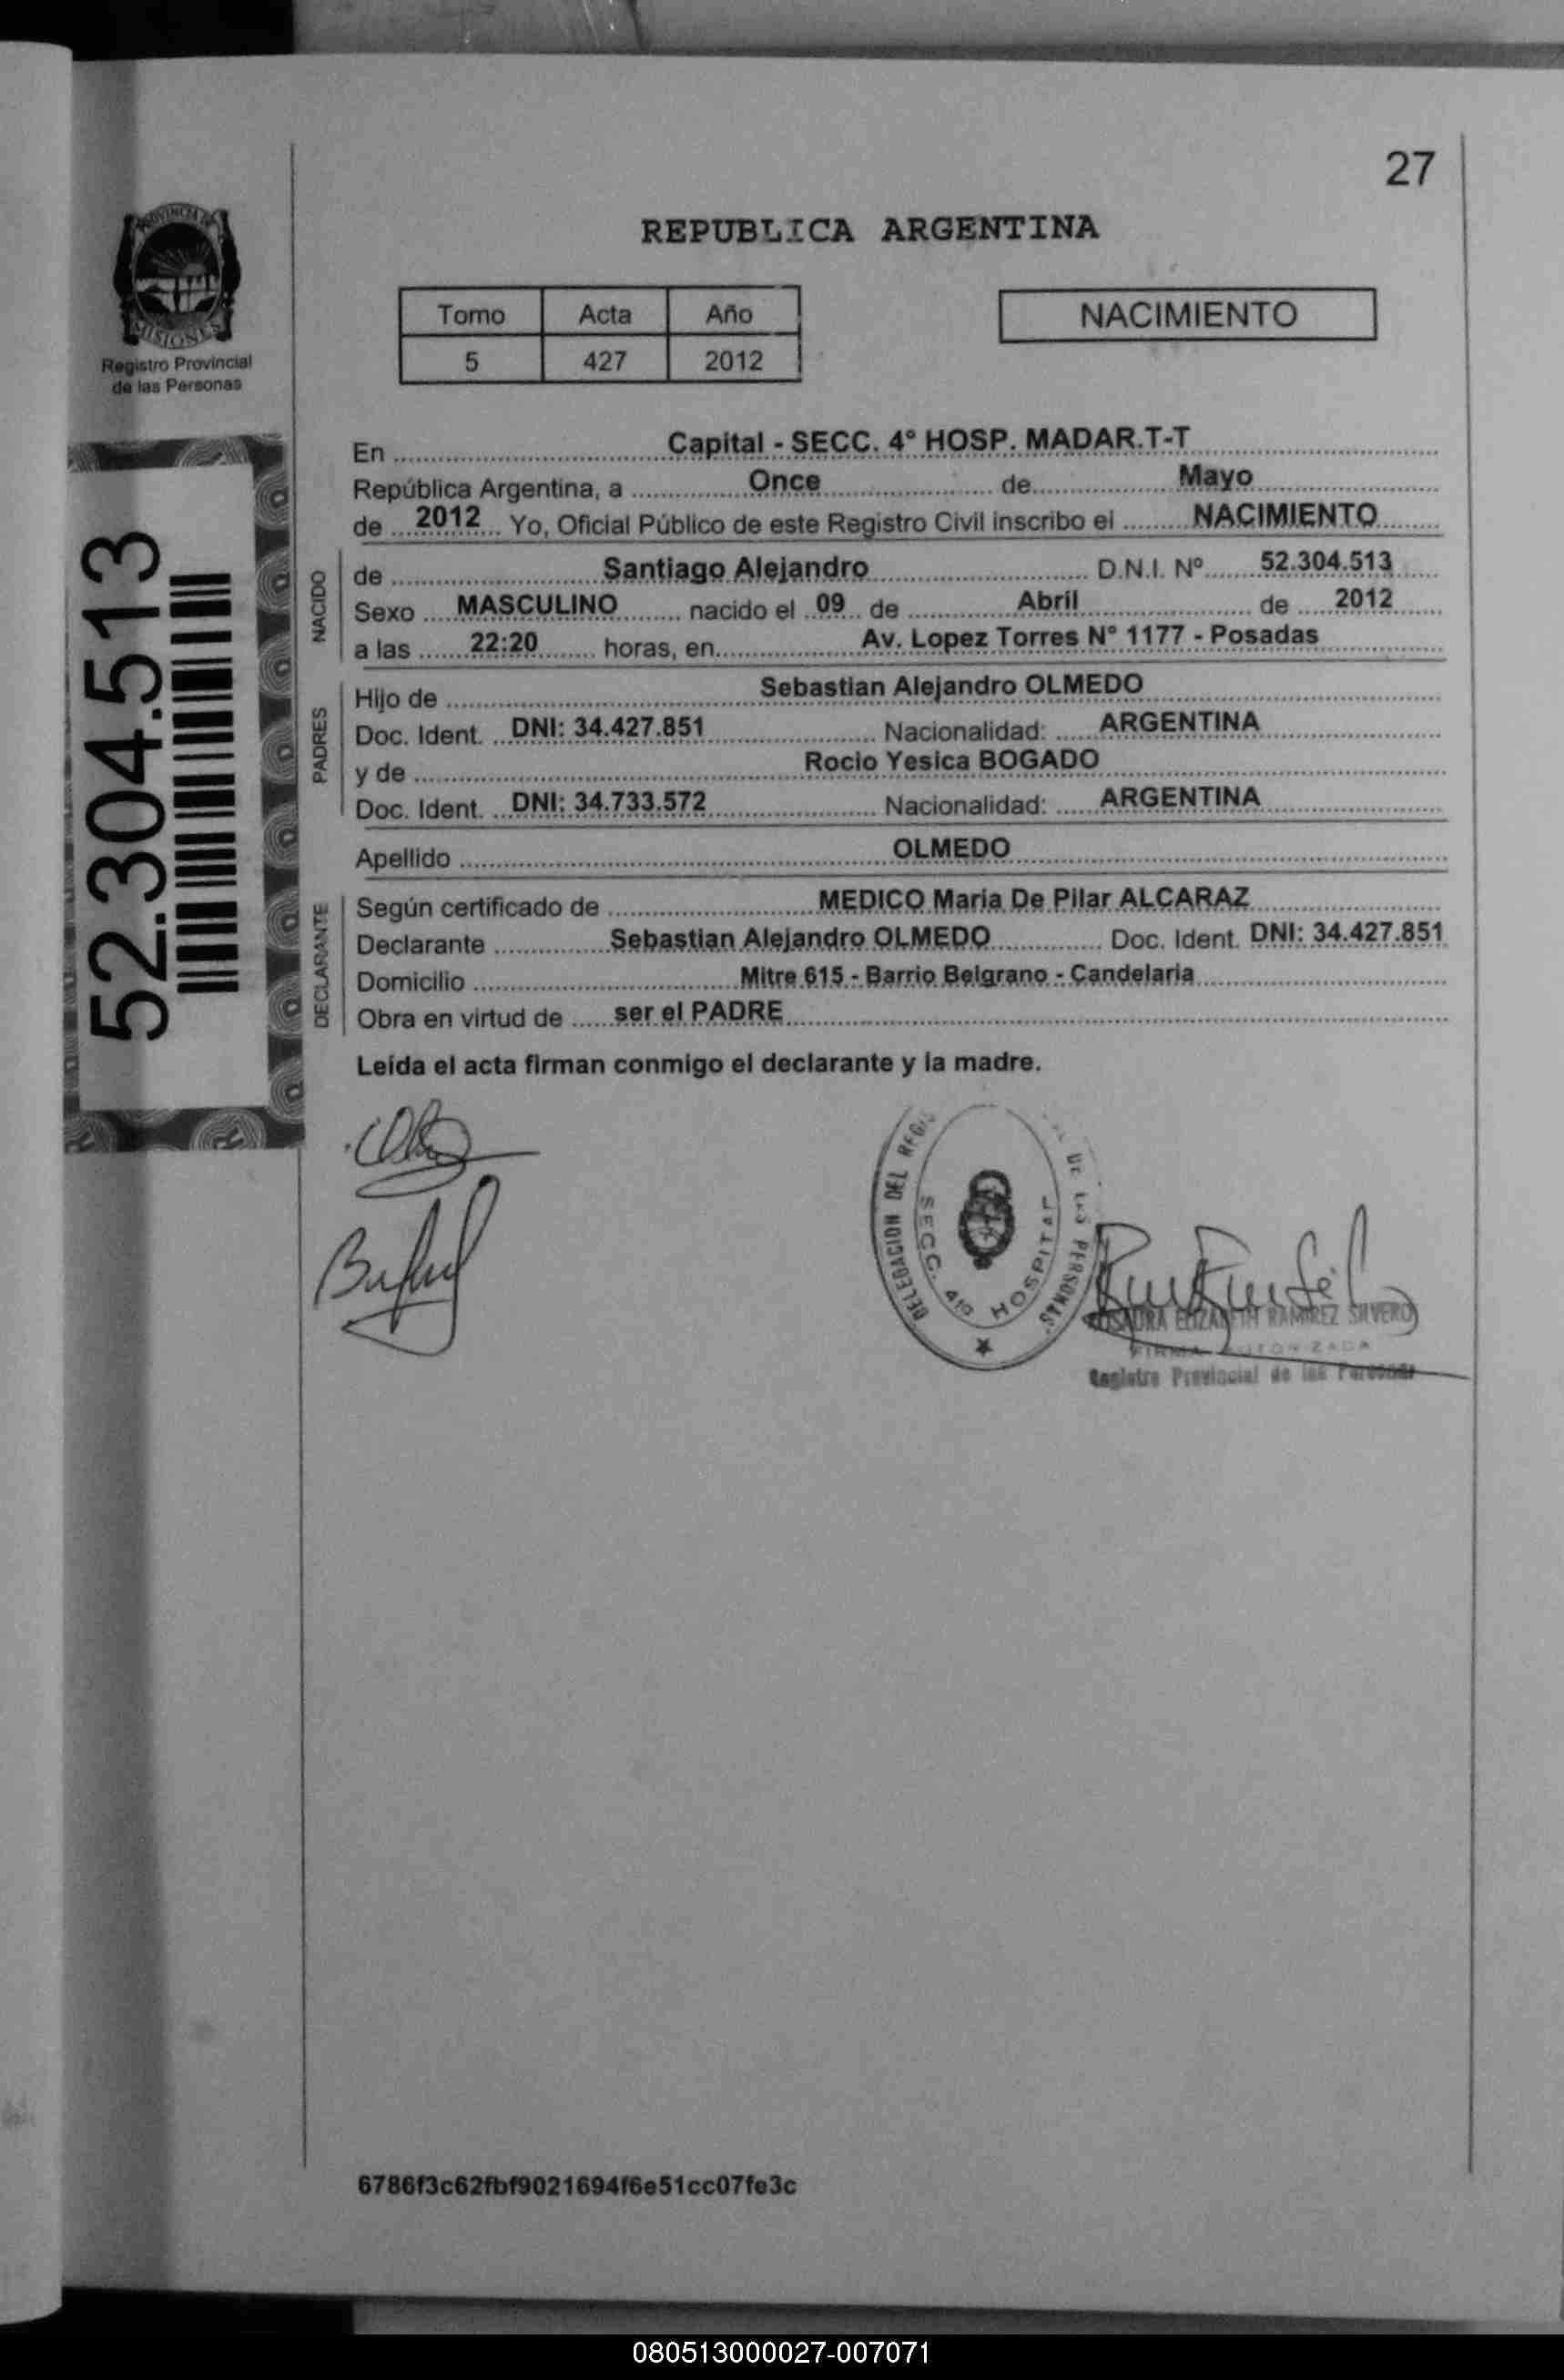 27
PROVINCIA DE
MISIONES
Registro Provincial
de las Personas
REPUBLICA ARGENTINA
Tomo Acta Año
5 427 2012
NACIMIENTO
52.304.513
En Capital - SECC. 4° HOSP. MADAR.T-T
República Argentina, a Once de Mayo
de 2012 Yo, Oficial Público de este Registro Civil inscribo el NACIMIENTO
NACIDO
de Santiago Alejandro D.N.I. Nº 52.304.513
Sexo MASCULINO nacido el 09 de Abril de 2012
a las 22:20 horas, en Av. Lopez Torres N° 1177 - Posadas
PADRES
Hijo de Sebastian Alejandro OLMEDO
Doc. Ident. DNI: 34.427.851 Nacionalidad: ARGENTINA
y de Rocio Yesica BOGADO
Doc. Ident. DNI: 34.733.572 Nacionalidad: ARGENTINA
Apellido OLMEDO
DECLARANTE
Según certificado de MEDICO Maria De Pilar ALCARAZ
Declarante Sebastian Alejandro OLMEDO Doc. Ident. DNI: 34.427.851
Domicilio Mitre 615 - Barrio Belgrano - Candelaria
Obra en virtud de ser el PADRE
Leída el acta firman conmigo el declarante y la madre.
DELEGACION DEL DE LAS PERSONAS
SECC. 4ta HOSPITAL
ELIZABETH RAMIREZ SILVERO
FIRMA AUTORIZADA
Registro Provincial de las Personas
6786f3c62fbf9021694f6e51cc07fe3c
080513000027-007071